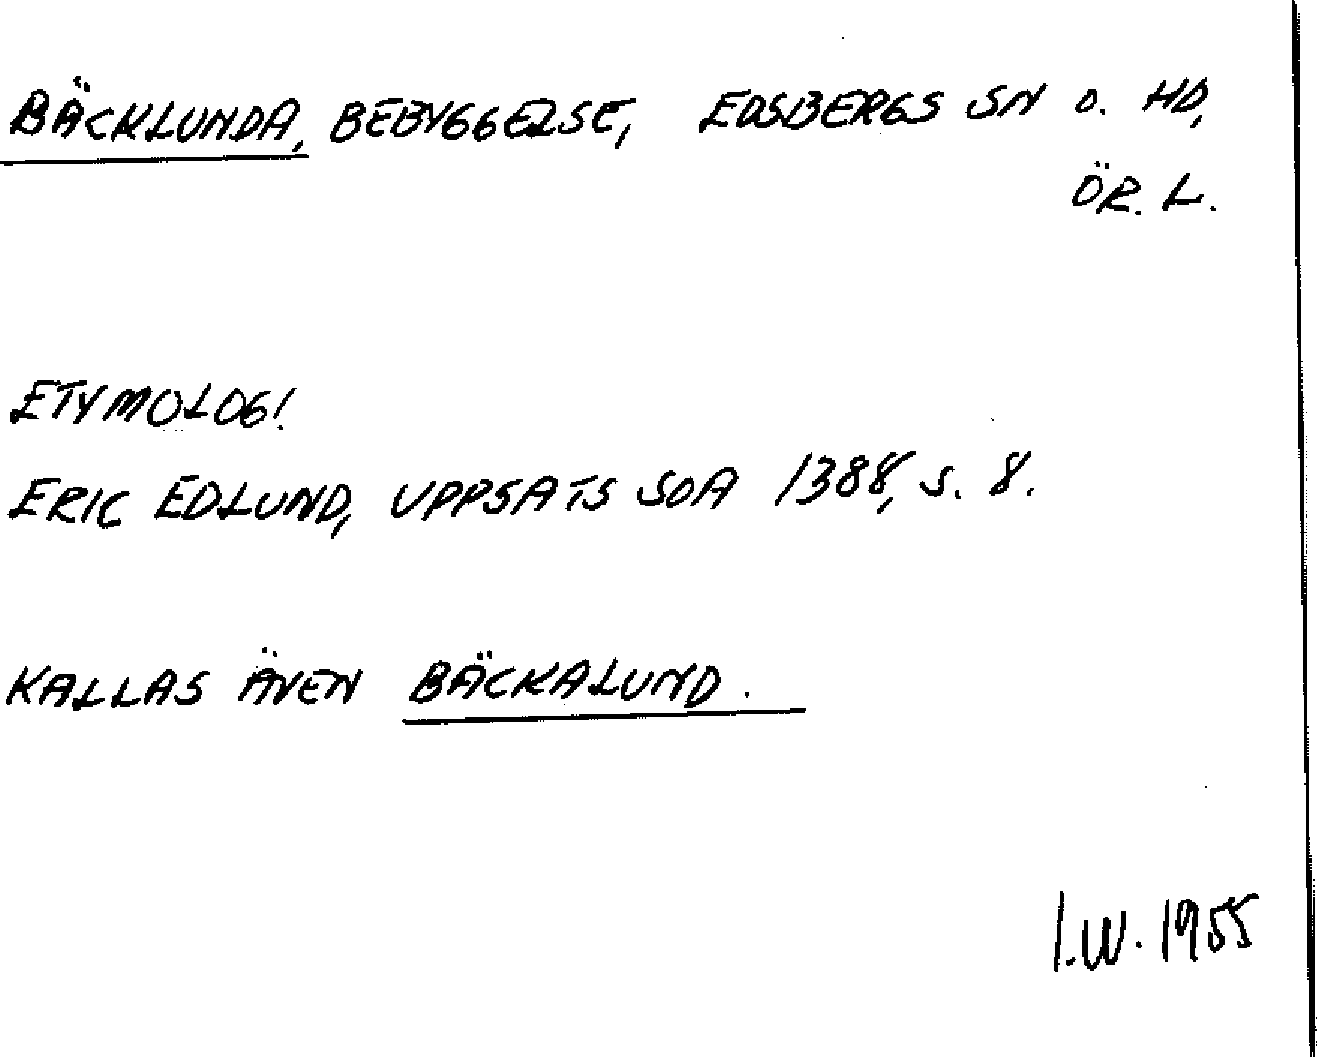 BÄCKLUNDA, BEBYGGELSE, EDSBERGS SN O. HD,
ÖR. L.
ETYMOLOGI
ERIC EDLUND, UPPSATS SOA 1388, S. 8.
KALLAS ÄVEN BÄCKALUND.
I.W. 1955